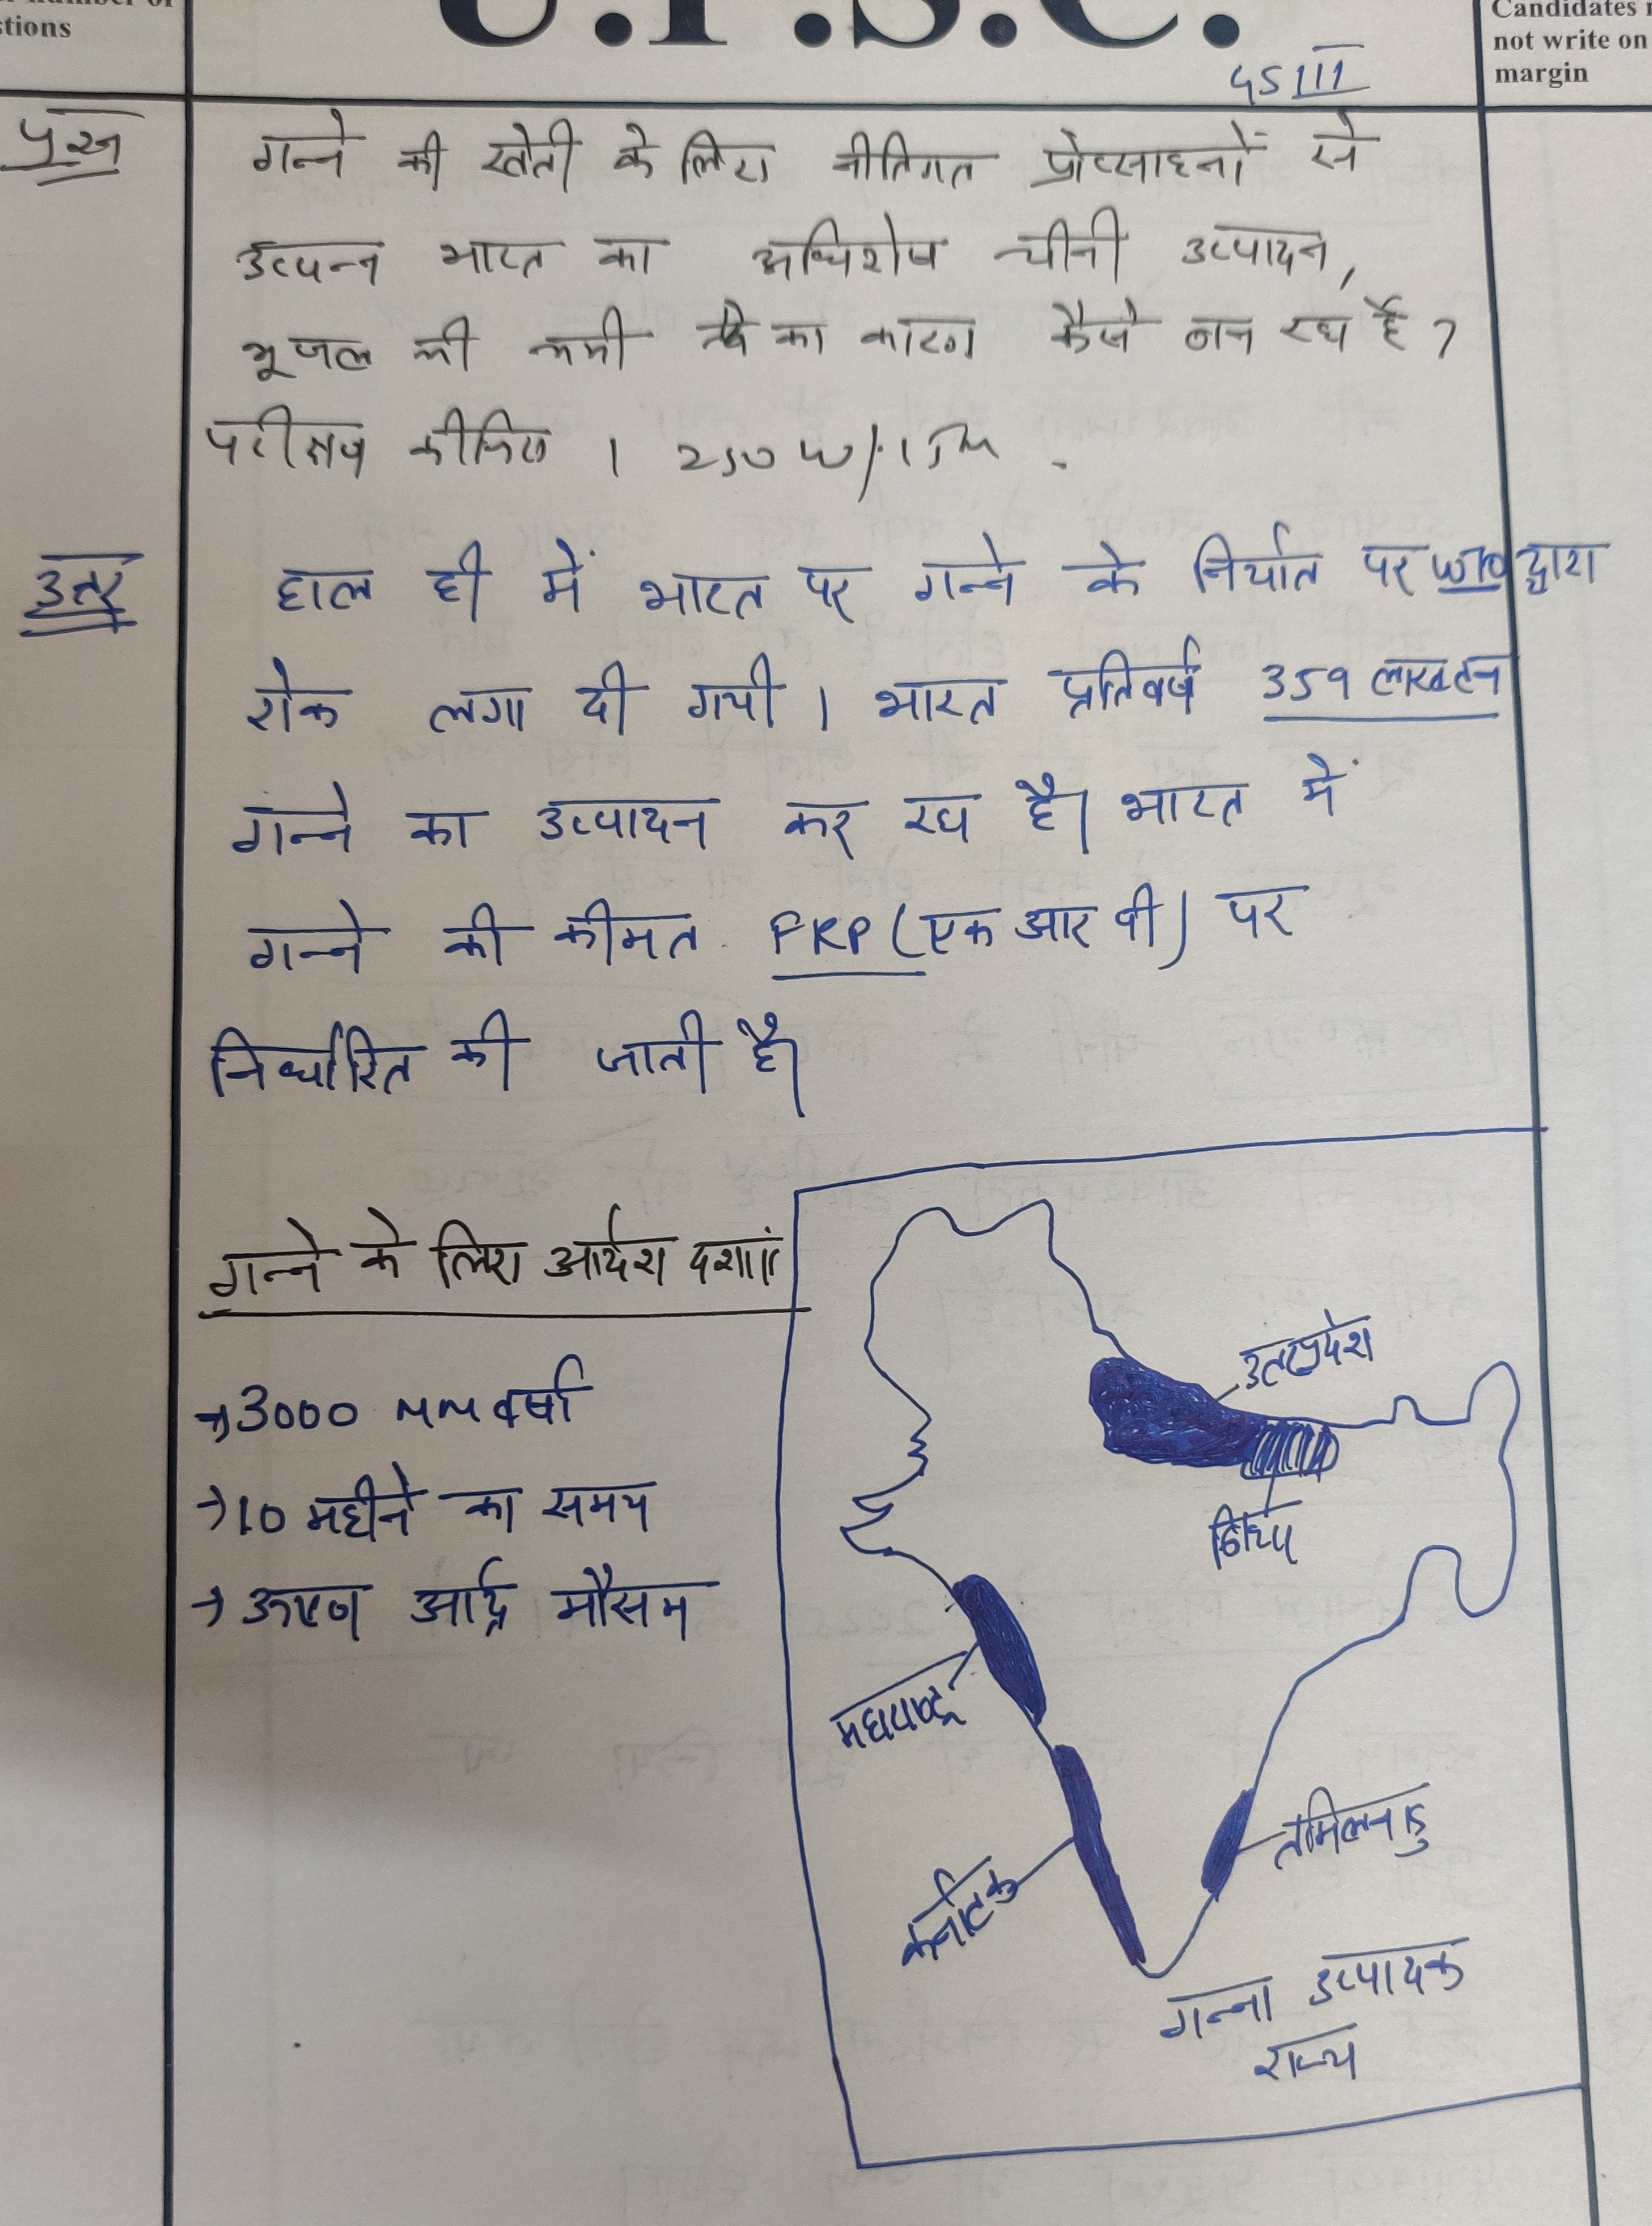 stions
U.P.S.C.
Candidates
not write on
margin
GS III
प्रश्न
गन्ने की खेती के लिए नीतिगत प्रोत्साहनों से
उत्पन्न भारत का अधिशेष चीनी उत्पादन,
भूजल की कमी का कारण कैसे बन रहा है ?
परीक्षण कीजिए । 250 W/15M
उत्तर
हाल ही में भारत पर गन्ने के निर्यात पर WTO द्वारा
रोक लगा दी गयी । भारत प्रतिवर्ष 359 लाख टन
गन्ने का उत्पादन कर रहा है। भारत में
गन्ने की कीमत FRP (एफ आर पी) पर
निर्धारित की जाती है।
गन्ने के लिए आर्दश दशाएं
→ 3000 MM वर्षा
→ 10 महीने का समय
→ ऊष्ण आर्द्र मौसम
उत्तरप्रदेश
बिहार
महाराष्ट्र
कर्नाटक
तमिलनाडु
गन्ना उत्पादक
राज्य